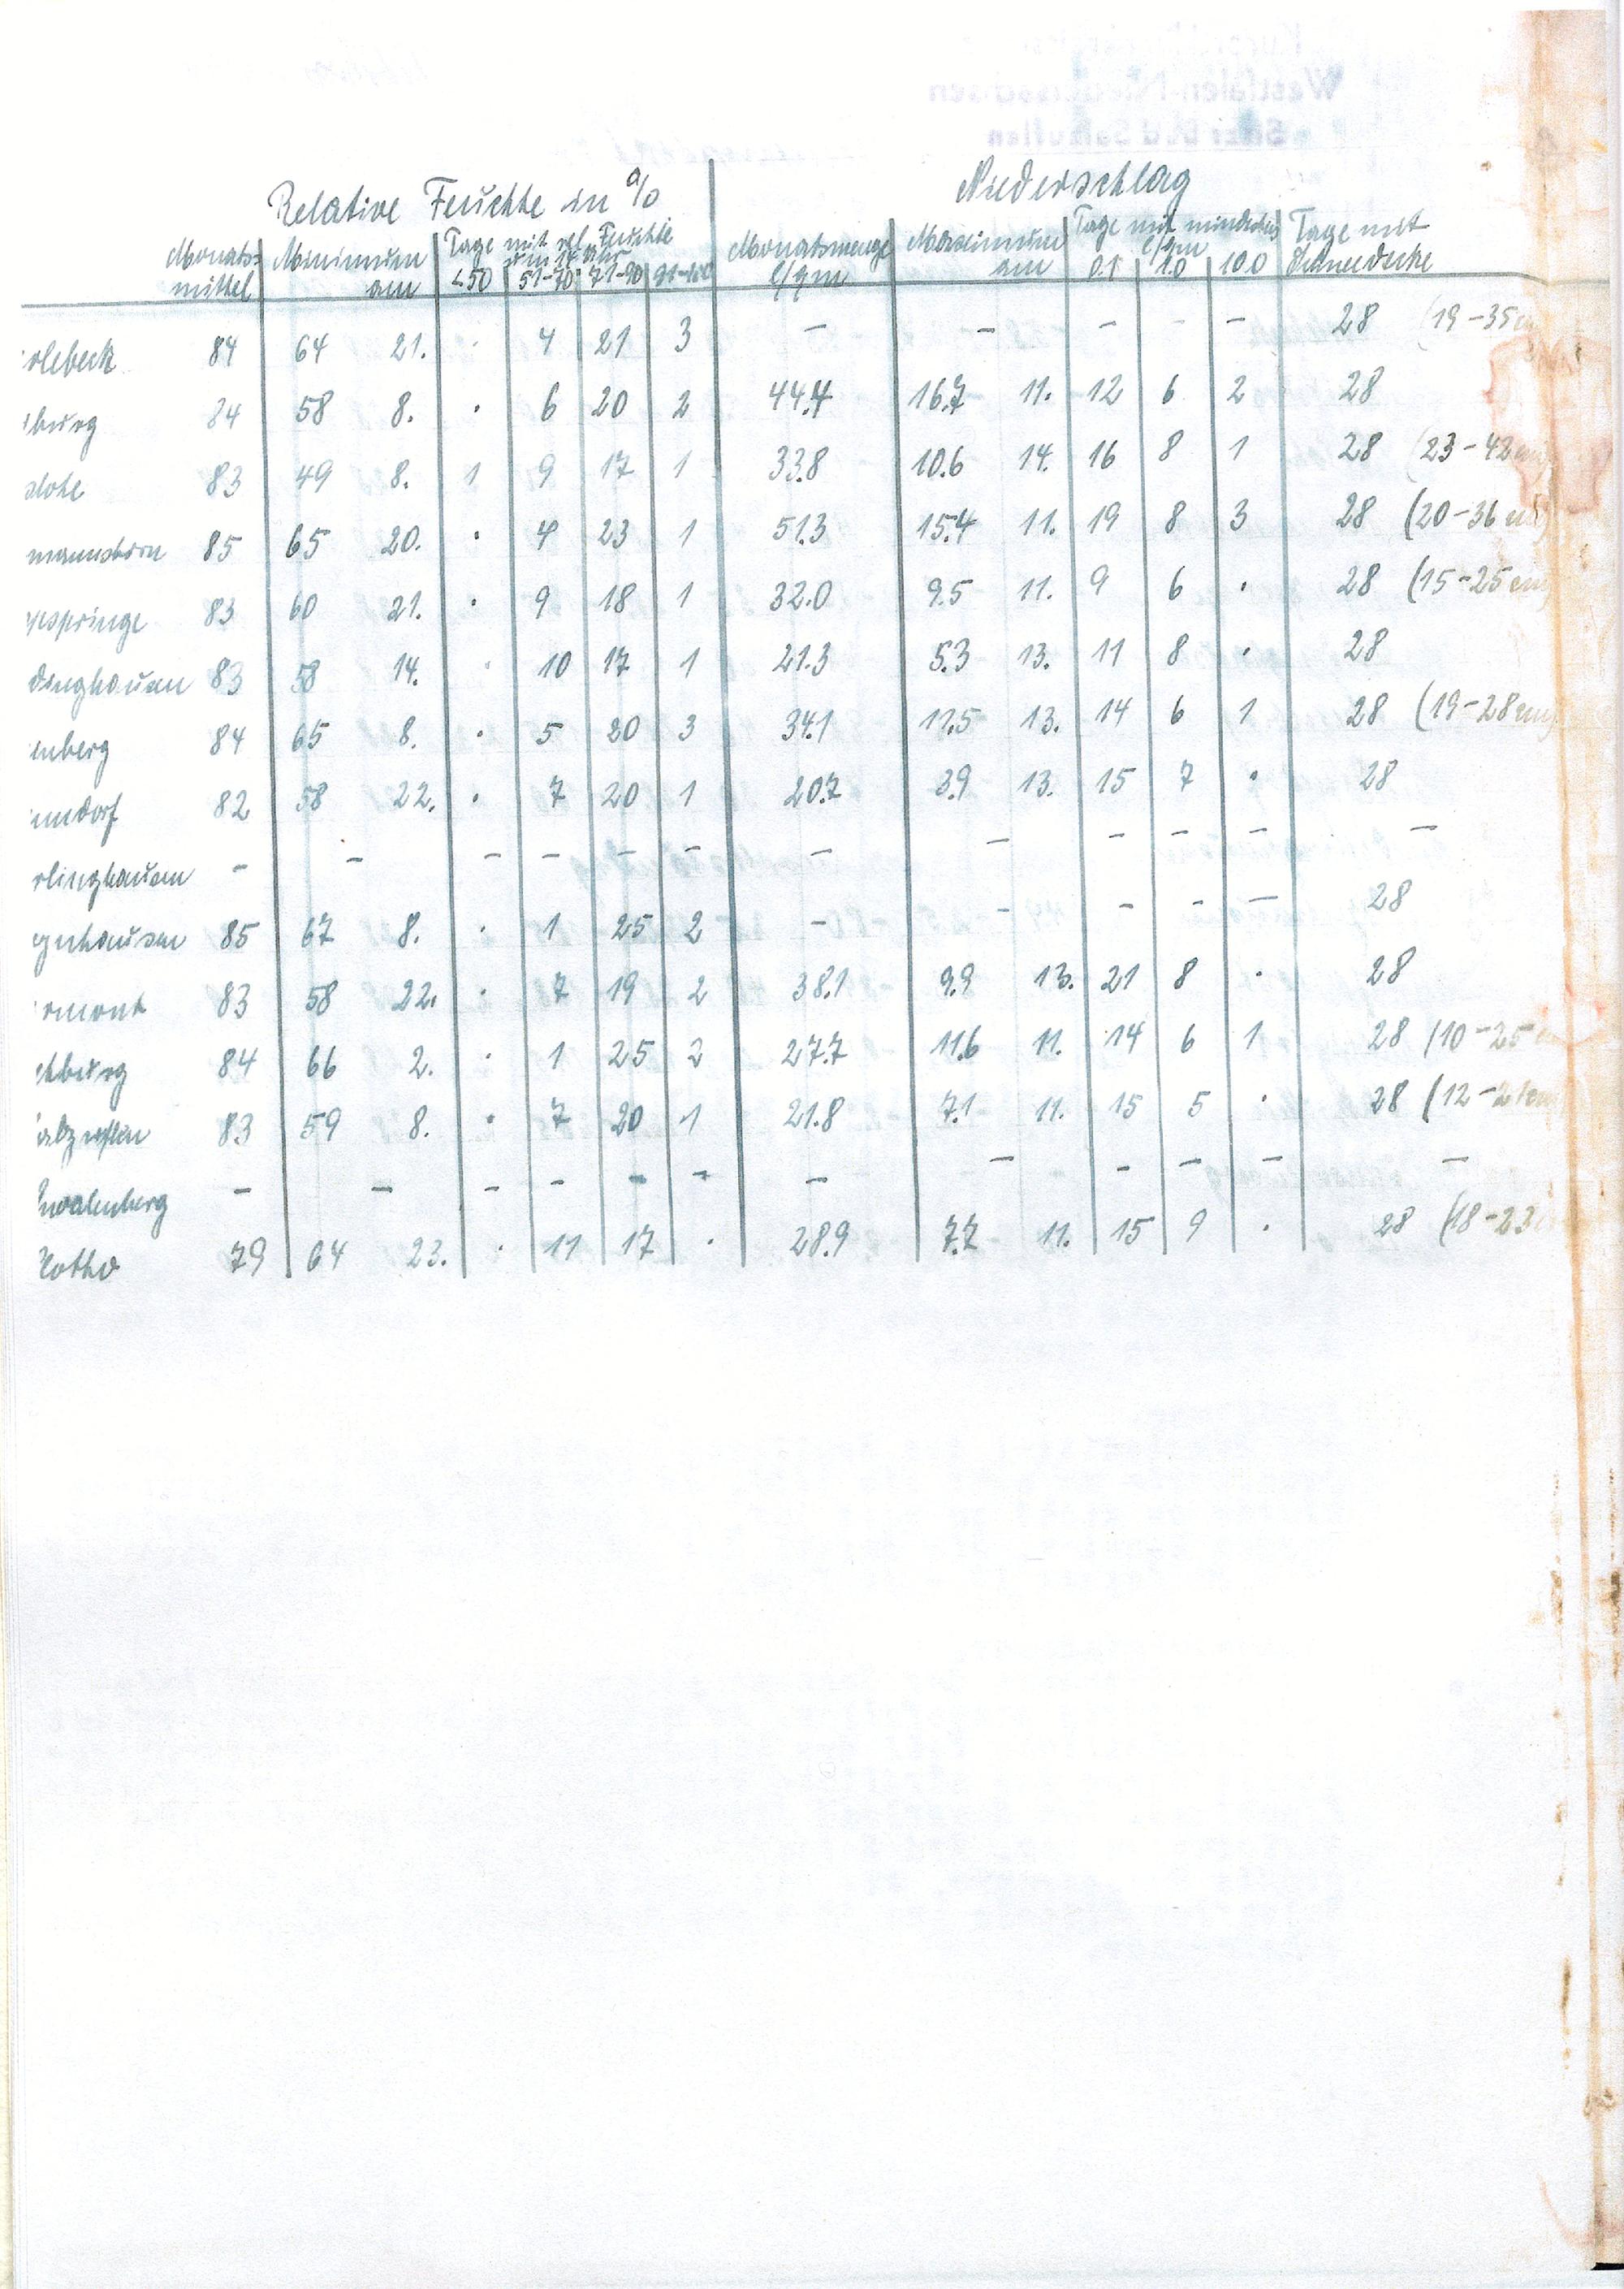 Relative Feuchte in % Niederschlag
Monats- Minimum Tage mit rel. Feuchte Monatsmenge Maximum Tage mit mindestens Tage mit
mittel am um 14 Uhr l/qm am l/qm Schneedecke
<50 51-70 71-90 91-100 0.1 1.0 10.0
rlebeck 84 64 21. . 4 21 3 - - - - - 28 (19-35
burg 84 58 8. . 6 20 2 44.4 16.7 11. 12 6 2 28
lohe 83 49 8. 1 9 17 1 33.8 10.6 14. 16 8 1 28 (23-42 cm)
mannsborn 85 65 20. . 4 23 1 51.3 15.4 11. 19 8 3 28 (20-36 cm)
springe 83 60 21. . 9 18 1 32.0 9.5 11. 9 6 . 28 (15-25 cm)
dinghausen 83 58 14. . 10 17 1 21.3 5.3 13. 11 8 . 28
enberg 84 65 8. . 5 20 3 34.1 11.5 13. 14 6 1 28 (19-28 cm)
nndorf 82 58 22. . 7 20 1 20.7 3.9 13. 15 7 . 28
rlinghausen - - - - - - - - - - - -
ynhausen 85 67 8. . 1 25 2 - - - - - 28
rmont 83 58 22. . 7 19 2 38.1 9.9 13. 21 8 . 28
burg 84 66 2. . 1 25 2 27.7 11.6 11. 14 6 1 28 (10-25
alzuflen 83 59 8. . 7 20 1 21.8 7.1 11. 15 5 . 28 (12-21 cm
hwalenberg - - - - - - - - - - - -
lotho 79 64 23. . 11 17 . 28.9 7.7 11. 15 9 . 28 (18-23